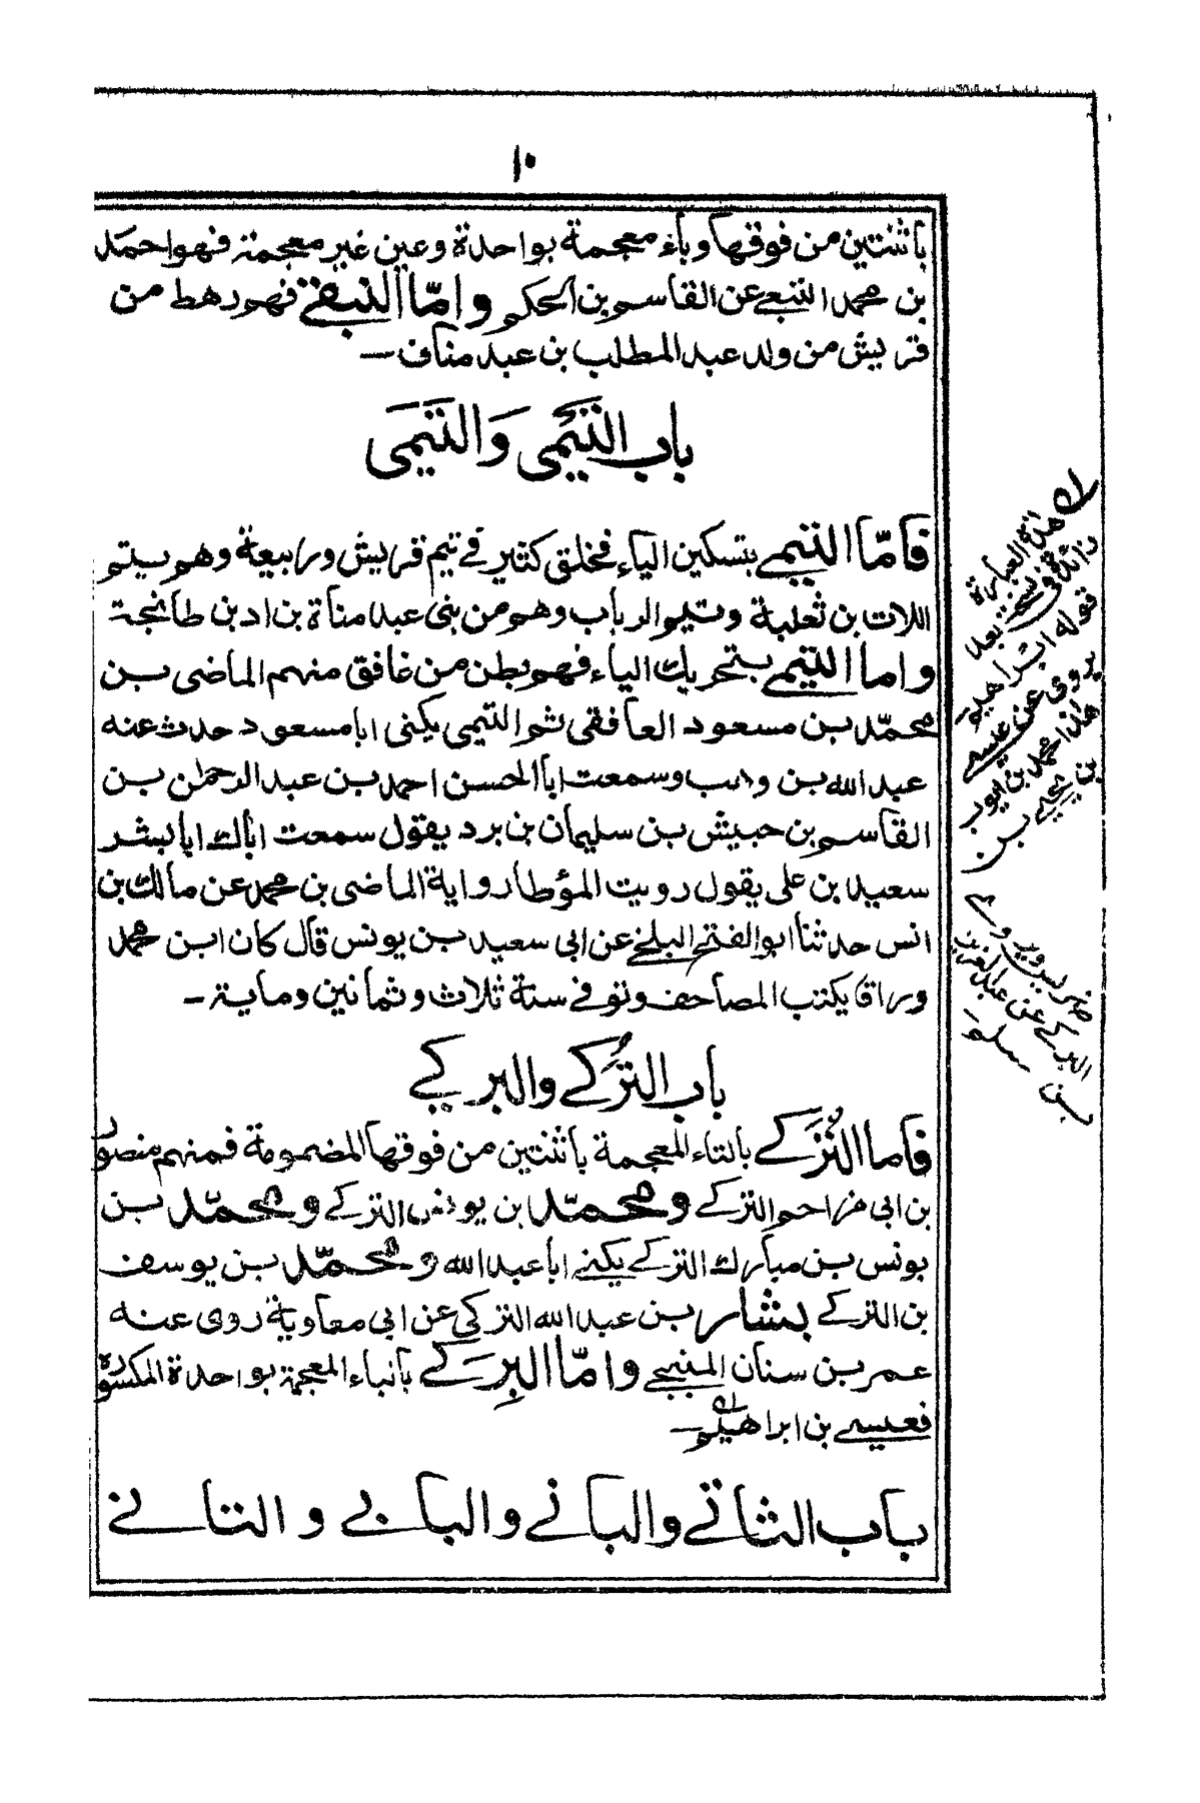 ١٠
باثنتين من فوقها وباء معجمة بواحدة وعين غير معجمة فهو احمد
بن محمد التبعي عن القاسم بن الحكم واما النبقي فهو رهط من
قريش من ولد عبد المطلب بن عبد مناف
باب التَيْمى وَالتَيَمَى
فامّا التيمى بتسكين الياء فخلق كثير فى تيم قريش وربيعة وهم يتم
اللات بن ثعلبة وتيم الرباب وهو من بنى عبد مناة بن اد بن طابخة
واما التيمى بتحريك الياء فهو بطن من غافق منهم الماضى بن
محمّد بن مسعود الغافقى ثم التيمى يكنى ابا مسعود حدث عنه
عبد الله بن وهب وسمعت ابا الحسن احمد بن عبد الرحمٰن بن
القاسم بن حبيش بن سليمان بن برد يقول سمعت اباك ابا بشر
سعيد بن على يقول رويت المؤطا رواية الماضى بن محمد عن مالك بن
انس حدثنا ابو الفتح البلخى عن ابى سعيد بن يونس قال كان ابن محمد
وراقا يكتب المصاحف وتوفى سنة ثلاث وثمانين وماية
باب التُركے والبركے
فاما التُركے بالتاء المعجمة باثنتين من فوقها المضمومة فمنهم منصور
بن ابى مزاحم التركے ومحمّد بن يونس التركے ومحمّد بن
يونس بن مبارك التركے يكنى ابا عبد الله ومحمّد بن يوسف
بن التركے بشار بن عبد الله التركى عن ابى معاوية روى عنه
عمر بن سنان المنبجى وامّا البِرَكے بالباء المعجمة بواحدة المكسورة
فعيسى بن ابراهيم
باب الثاتے والبانے والبابے والتانے
هذه العبارة
زائدة فى نسخة بعد
قوله ابراهيم
يروى عن عيسى
هذا احمد بن ايوب
بن يحيى بن
ضريس ويروى
البركے عن عبد العزيز
بن مسلم